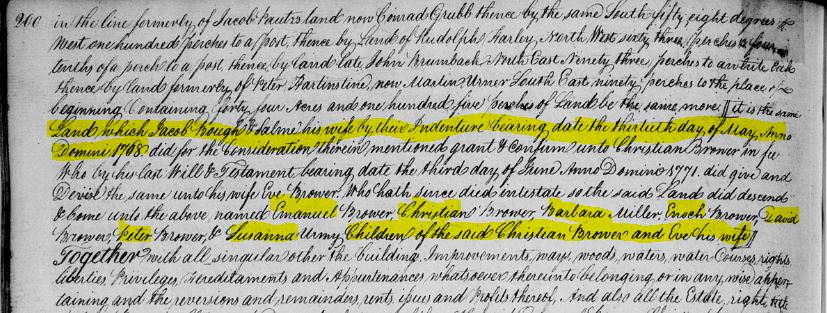 200
in the line formerly of Jacob Kautz land now Conrad Grubb thence by the same South fifty eight degrees &
West one hundred perches to a post, thence by Land of Rudolph Harley, North West sixty three perches & four
tenths of a perch to a post thence by land late John Brumback North East Ninety three perches to a white Oak
thence by land formerly of Peter Hartinstine, now Martin Urner South East ninety perches to the place of
beginning Containing forty four Acres and one hundred five Perches of Land be the same more || it is the same
Land which Jacob Bough & Salme his wife by their Indenture bearing date the thirtieth day of May, Anno
Domini 1768 did for the Consideration therein mentioned grant & confirm unto Christian Brower in fee
Who by his last Will & Testament bearing date the third day of June Anno Domino 1771. did give and
Devise the same unto his wife Eve Brower. Who hath since died intestate so the said Land did descend
& Come unto the above named Emanuel Brower, Christian Brower Barbara Miller, Enoch Brower, David
Brower, Peter Brower, & Susanna Urmy Children of the said Christian Brower and Eve his wife ||
Together with all singular other the Building Improvements, ways, woods, waters, water-Courses, rights
liberties Privileges, Hereditaments and Appurtenances whatsoever thereinto belonging or in any wise apper-
taining and the reversions and remainders, rents, issues and Profits thereof, And also all the Estate, right title